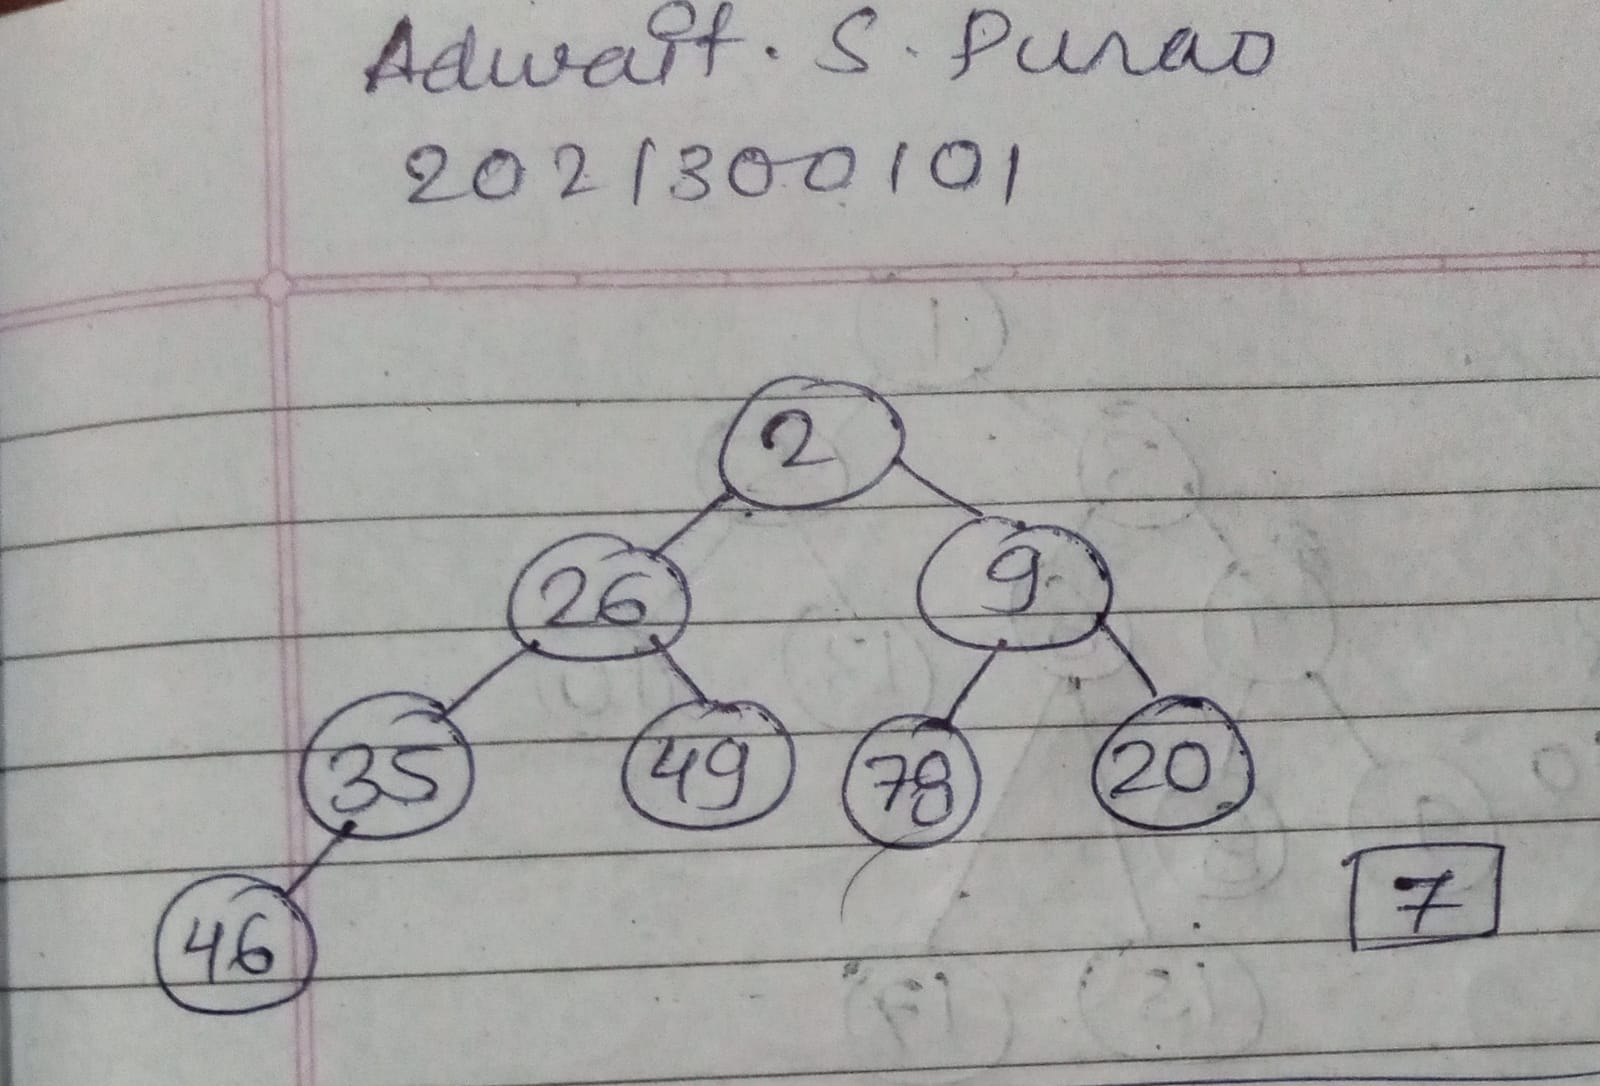 Adwait. S. Purao
2021300101
2
26 9
35 49 78 20
7
46